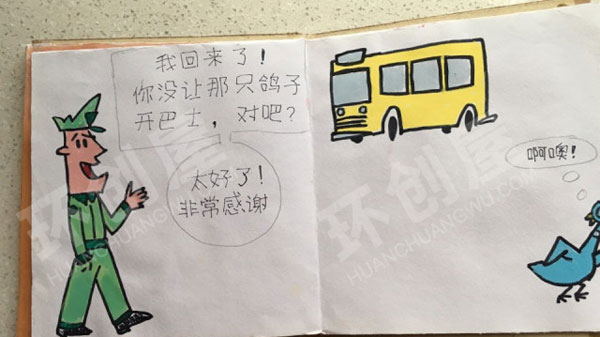 我回来了！
你没让那只鸽子
开巴士，对吧？
太好了！
非常感谢
啊噢！
环创屋
HUANCHUANGWU.COM
环创屋
HUANCHUANGWU.COM